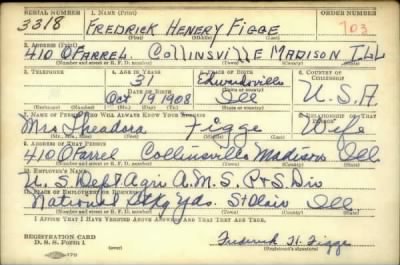 SERIAL NUMBER 1. NAME (Print)
3318 FREDRICK HENERY FIGGE 703
(First) (Middle) (Last)
2. ADDRESS (Print)
410 O'FARREL COLLINSVILLE MADISON ILL
(Number and street or R. F. D. number) (Town) (County) (State)
3. TELEPHONE 4. AGE IN YEARS 5. PLACE OF BIRTH 6. COUNTRY OF CITIZENSHIP
31 Edwardsville
DATE OF BIRTH (Town or county)
Oct 1908 Ill U.S.A
(Exchange) (No.) (Mo.) (Day) (Yr.) (State or country)
7. NAME OF PERSON WHO WILL ALWAYS KNOW YOUR ADDRESS 8. RELATIONSHIP OF THAT PERSON
Mrs Theadora Figge Wife
(Mr., Mrs., Miss) (First) (Middle) (Last)
9. ADDRESS OF THAT PERSON
410 O'Farrel Collinsville Madison Ill
(Number and street or R. F. D. number) (Town) (County) (State)
10. EMPLOYER'S NAME
U.S Dept Agri A.M.S. P&S Div
11. PLACE OF EMPLOYMENT OR BUSINESS
National Yds. St Clair Ill.
(Number and street or R. F. D. number) (Town) (County) (State)
I AFFIRM THAT I HAVE VERIFIED ABOVE ANSWERS AND THAT THEY ARE TRUE.
REGISTRATION CARD
D. S. S. Form 1 Frederick H. Figge
(Registrant's signature)